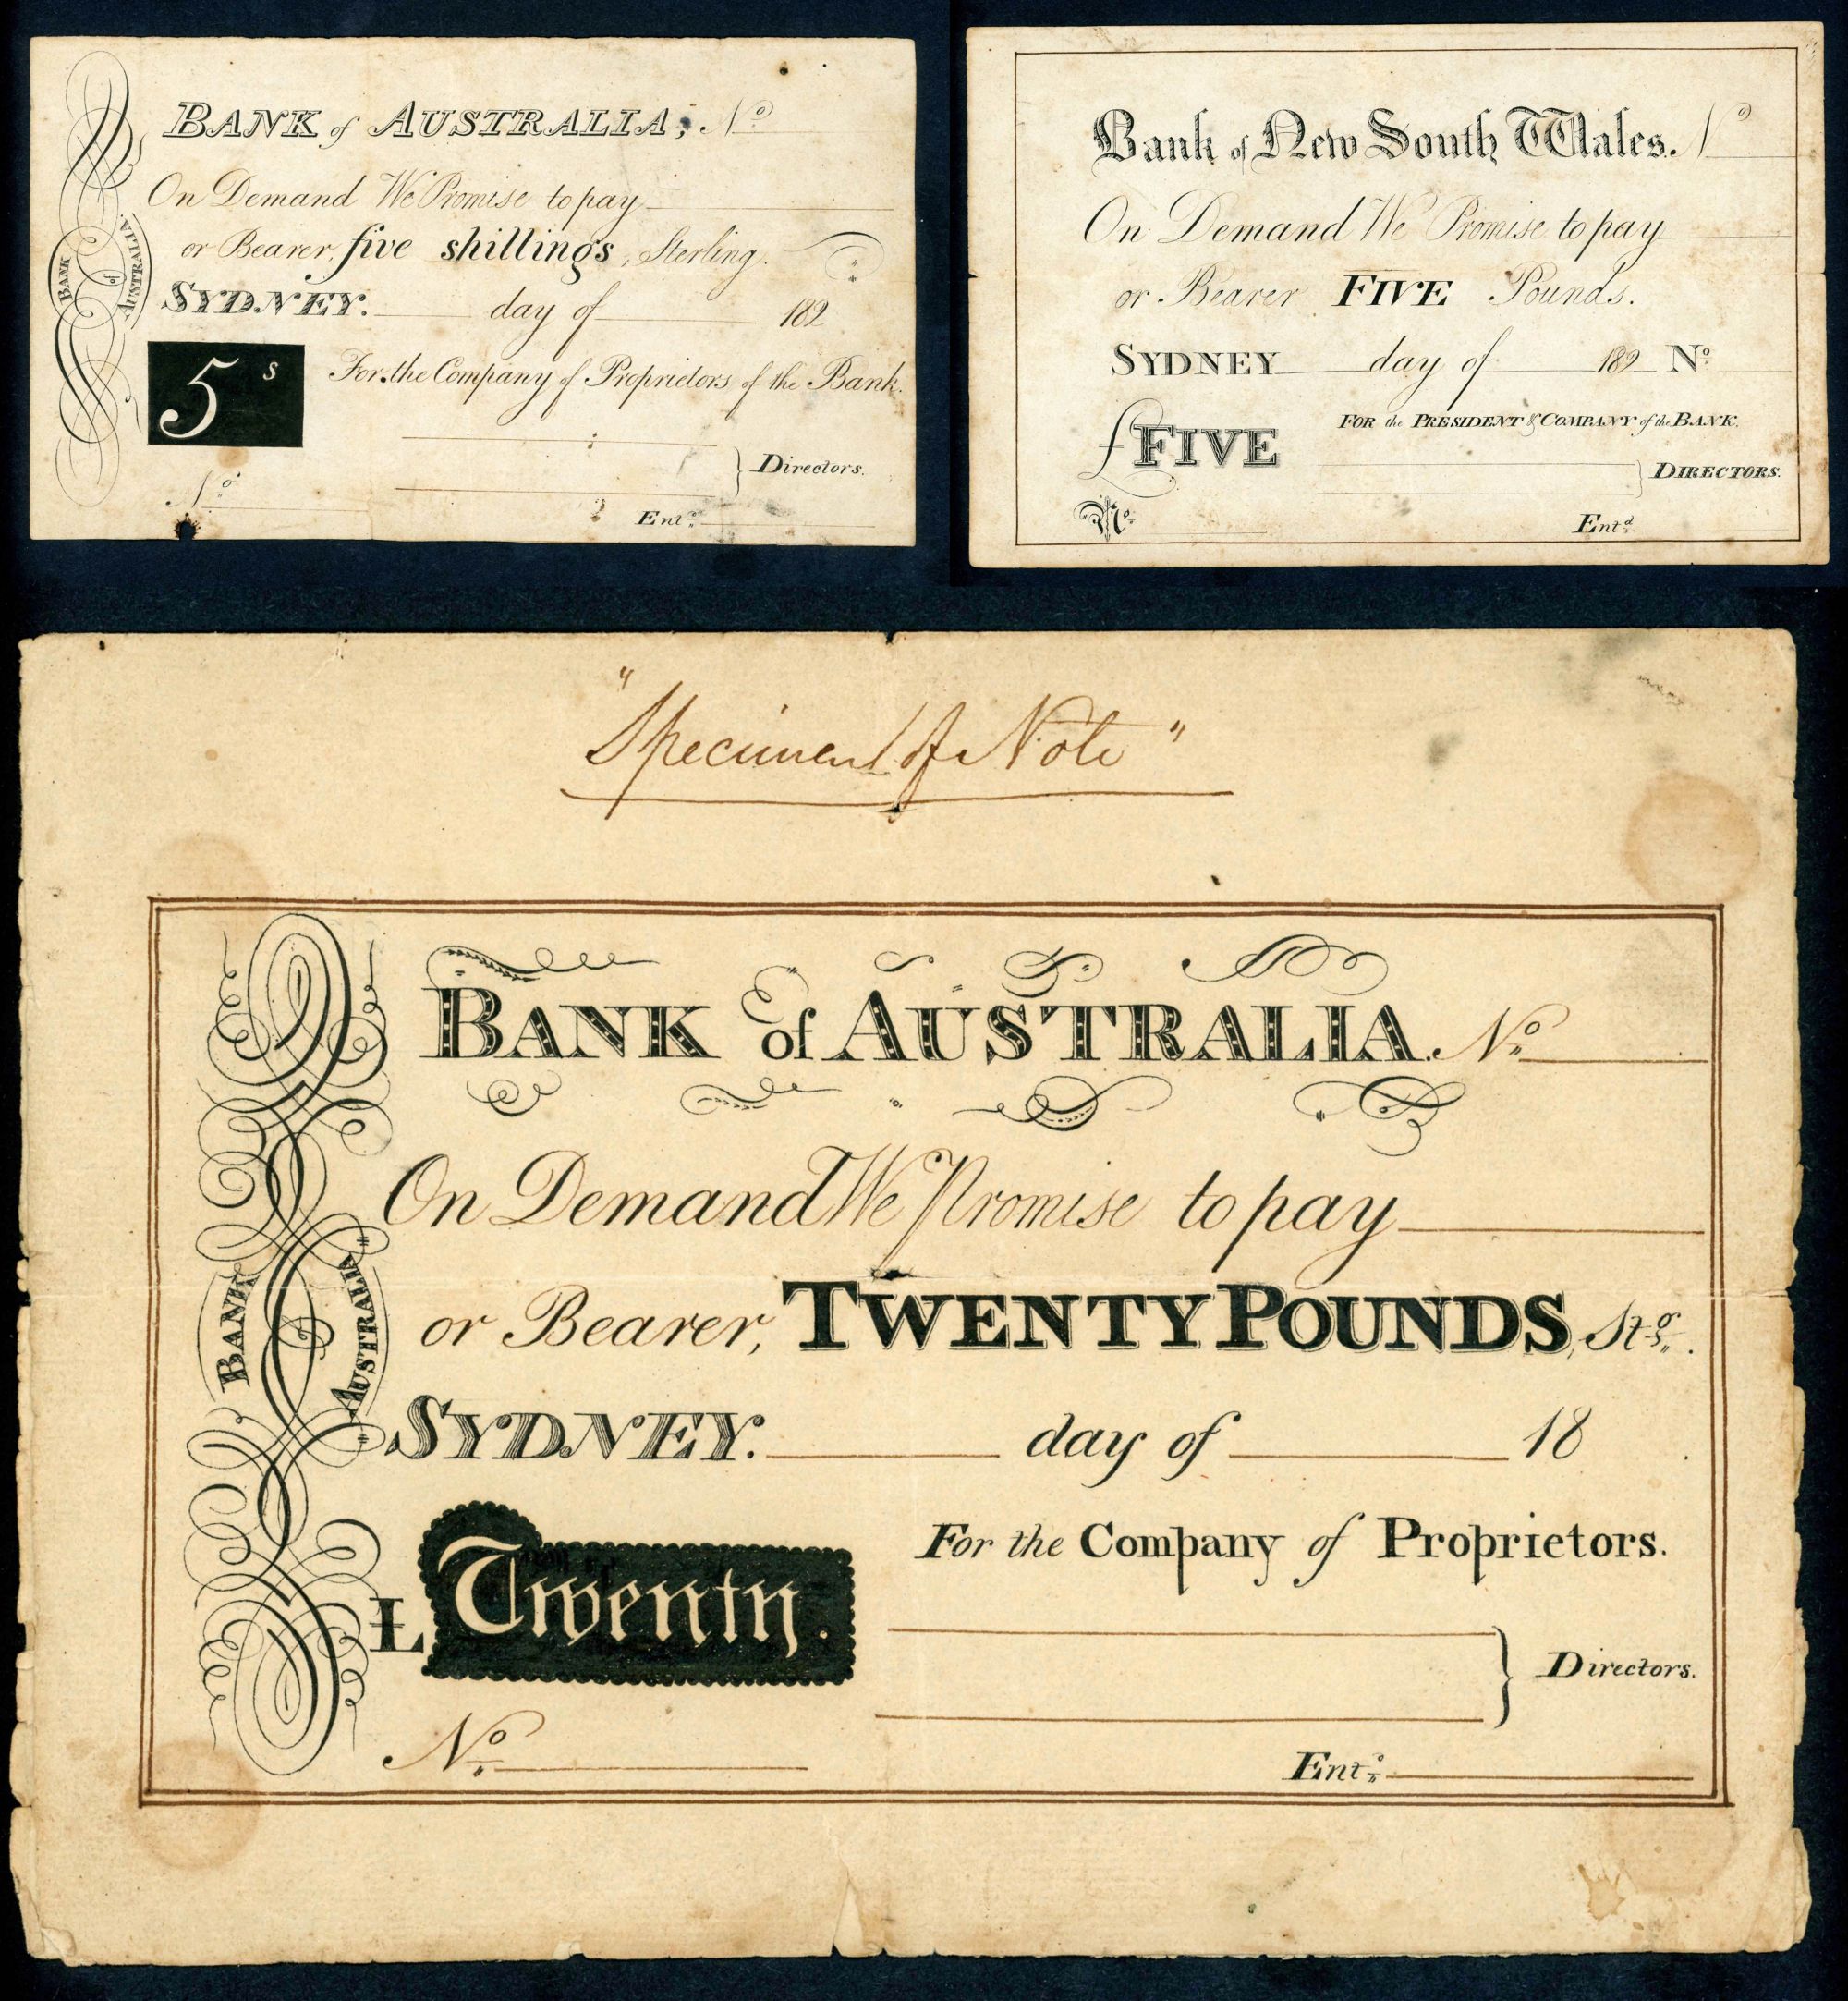 BANK of AUSTRALIA; No
On Demand We Promise to pay
or Bearer, five shillings, Sterling.
BANK of AUSTRALIA
SYDNEY. day of 182
5 s
For the Company of Proprietors of the Bank.
Directors.
No
Ent.o
Bank of New South Wales. No
On Demand We Promise to pay
or Bearer FIVE Pounds.
SYDNEY day of 182 No
FOR the PRESIDENT & COMPANY of the BANK.
£FIVE
DIRECTORS.
No
Ent.d
"Specimen of Note"
BANK of AUSTRALIA. No
On Demand We Promise to pay
or Bearer, TWENTY POUNDS, St.g.
BANK of AUSTRALIA
SYDNEY. day of 18
For the Company of Proprietors.
£ Twenty.
Directors.
No
Ent.o